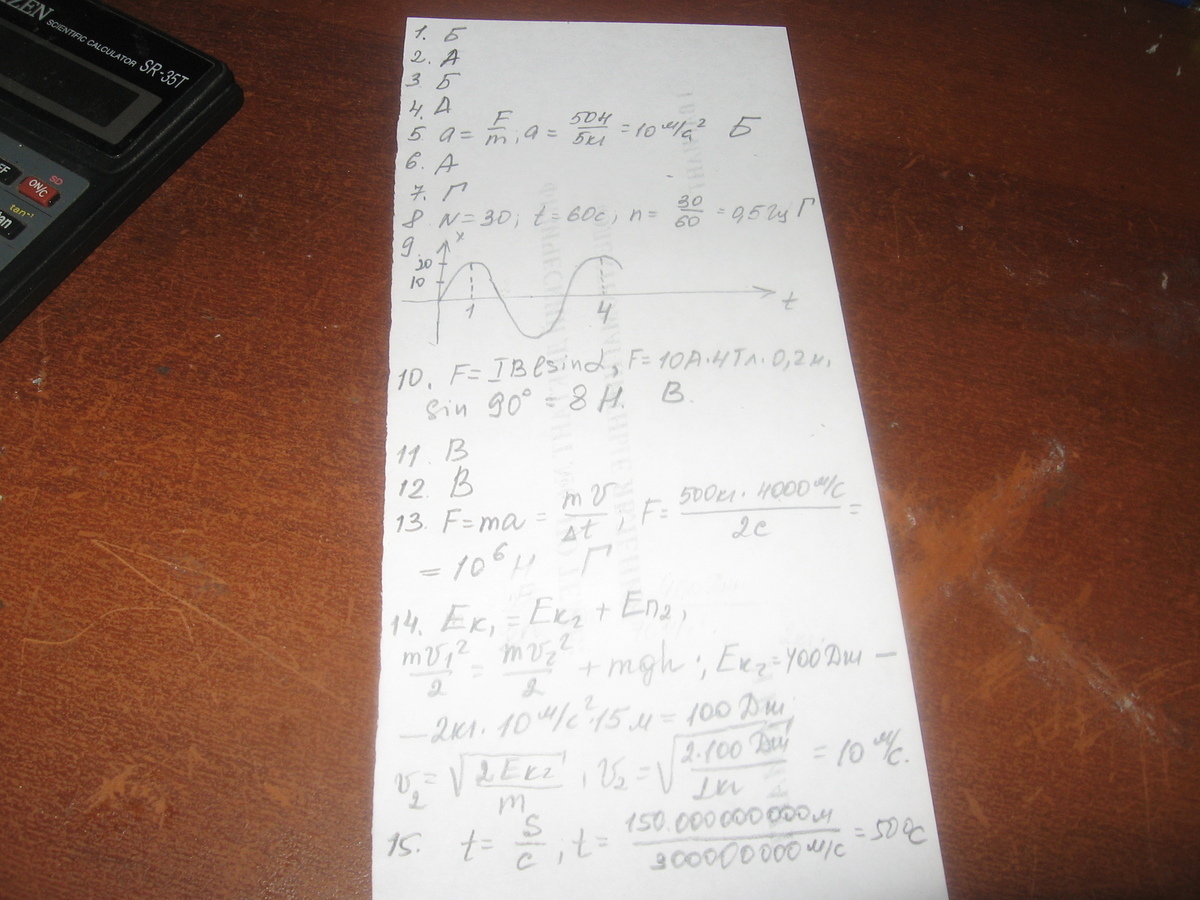 ZEN
SCIENTIFIC CALCULATOR SR-35T
SD
ON/C
tan⁻¹
1. Б
2. А
3. Б
4. Д
5. a = F/m, a = 50Н/5кг = 10 м/с² Б
6. А
7. Г
8. N = 30; t = 60с; n = 30/60 = 0,5 Гц Г
9. x
20
10
1 4 t
10. F = IBℓsinα, F = 10А·4Тл·0,2м.
sin 90° = 8 Н. В.
11. В
12. В
13. F = ma = mv/Δt, F = 500кг·4000м/с / 2с =
= 10⁶ Н Г
14. Eк₁ = Eк₂ + Eп₂,
mv₁²/2 = mv₂²/2 + mgh; Eк₂ = 400Дж —
— 2кг·10м/с²·15м = 100 Дж
v₂ = √(2Eк₂/m), v₂ = √(2·100 Дж/1кг) = 10 м/с.
15. t = S/c, t = 150.000000000м / 300000000м/с = 500с